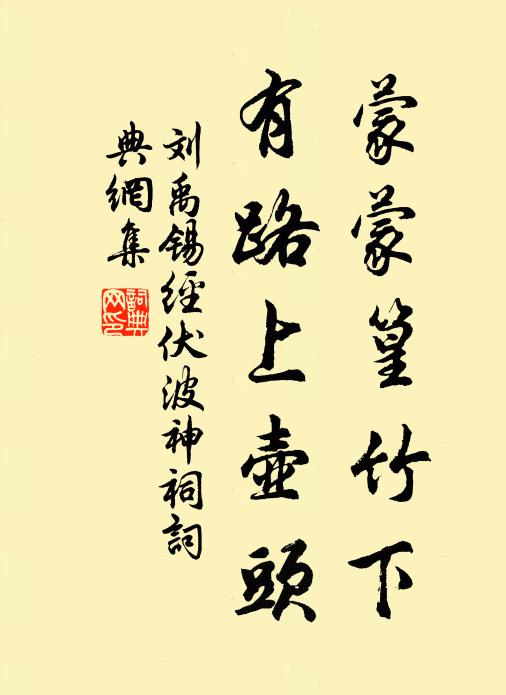 蒙蒙篁竹下
有路上壺頭
刘禹锡經伏波神祠詞
典網集
詞典
网印